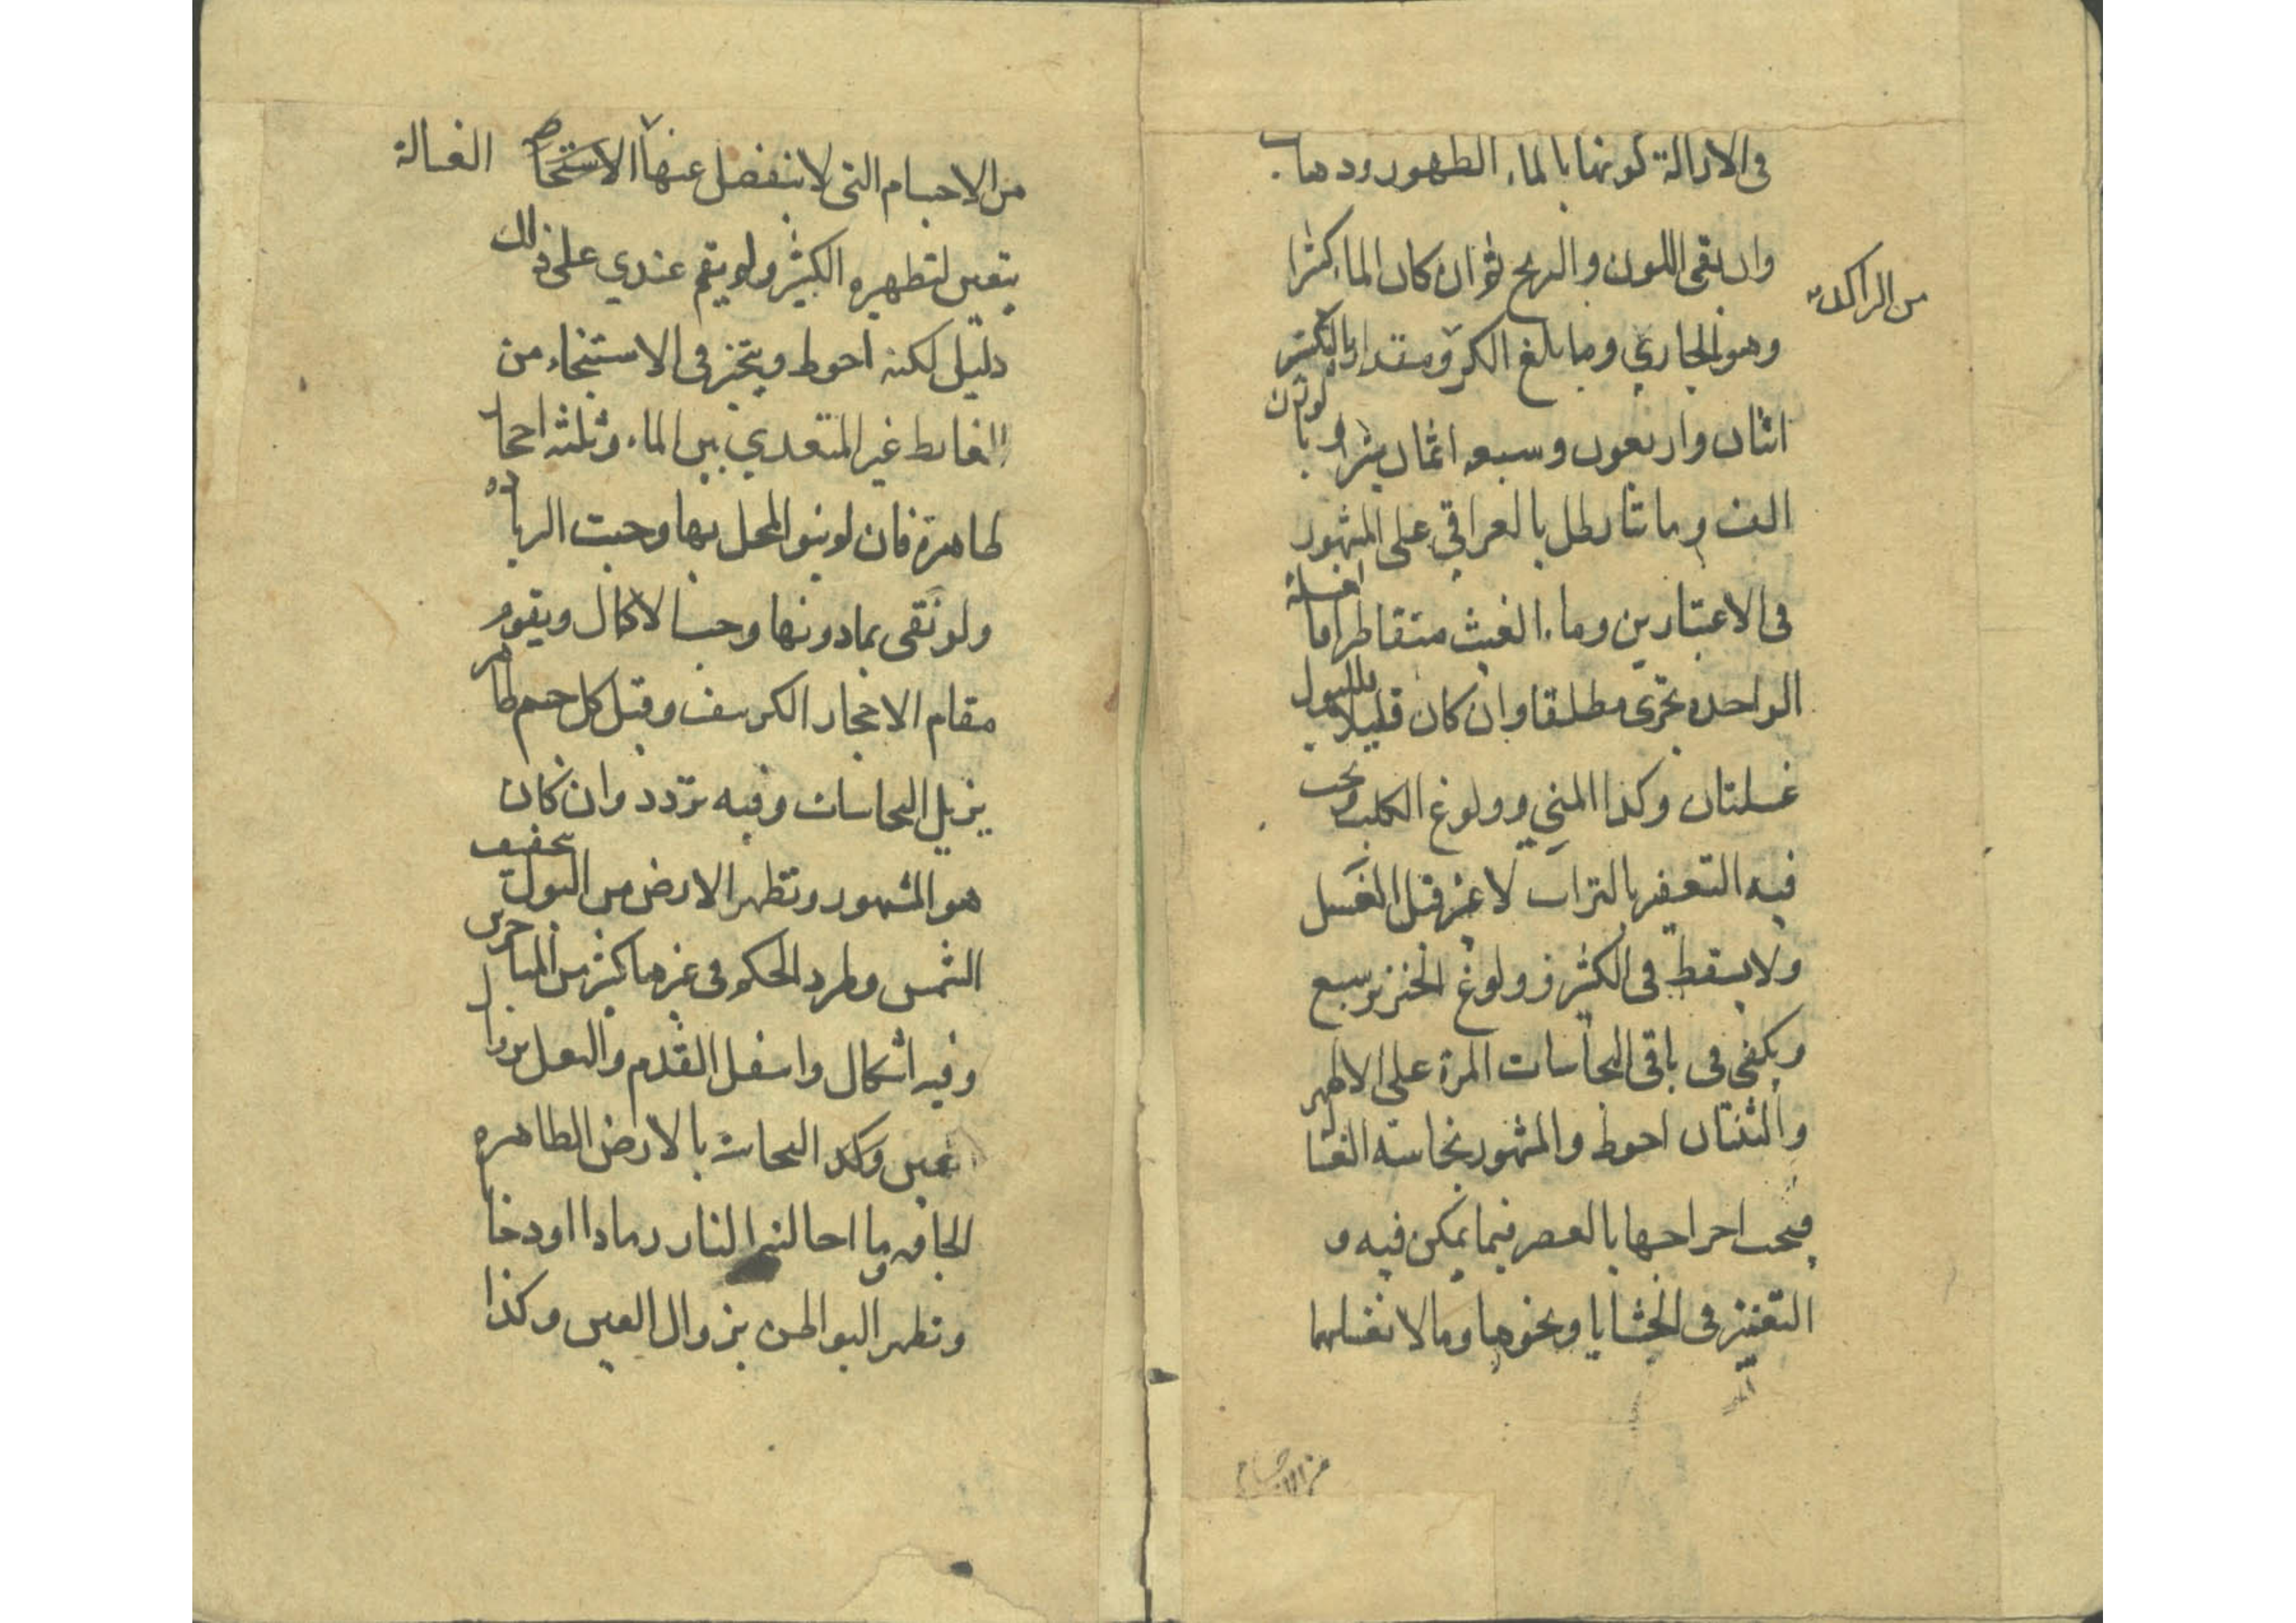 في الازالة كونها بالماء الطهور وذهاب
وان بقى اللون والريح ثم ان كان الماء كثيرا
من الراكد
وهو الجاري وما بلغ الكر ومقداره بالكثير
اثنان واربعون وسبعة اثمان شبرا وبالوزن
الف ومائتا رطل بالعراقي على المشهور
في الاعتبارين وماء الغيث متقاطرا فالغسلة
الواحدة تجزى مطلقا وان كان قليلا فللبول
غسلتان وكذا المني وولوغ الكلب ويجب
فيه التعفير بالتراب لا غير قبل الغسل
ولا يسقط في الكثير وولوغ الخنزير سبع
ويكفي في باقي النجاسات المرة على الاظهر
والثنتان احوط والمشهور نجاسة الغسالة
فيجب اخراجها بالعصر فيما يمكن فيه و
التغميز في الحشايا ونحوها وما لا تغسلها
من الاجسام
من الاجسام التي لا تنفصل عنها الغسالة
يتعين لتطهيره الكثير ولم يقم عندي على ذلك
دليل لكنه احوط ويتخير في الاستنجاء من
الغايط غير المتعدي بين الماء وثلثة احجار
طاهرة فان لم ينق المحل بها وجبت الزيادة
ولو نقى بما دونها وجب الاكمال ويقوم
مقام الاحجار الكرسف وقيل كل جسم طاهر
يزيل النجاسات وفيه تردد وان كان
هو المشهور وتطهر الارض من البول بتجفيف
الشمس وطرد الحكم في غيرها كثير من المتاخرين
وفيه اشكال واسفل القدم والنعل بزوال
عين النجاسة بالارض الطاهرة
الجافة وما احالته النار رمادا او دخانا
وتطهر البواطن بزوال العين وكذا